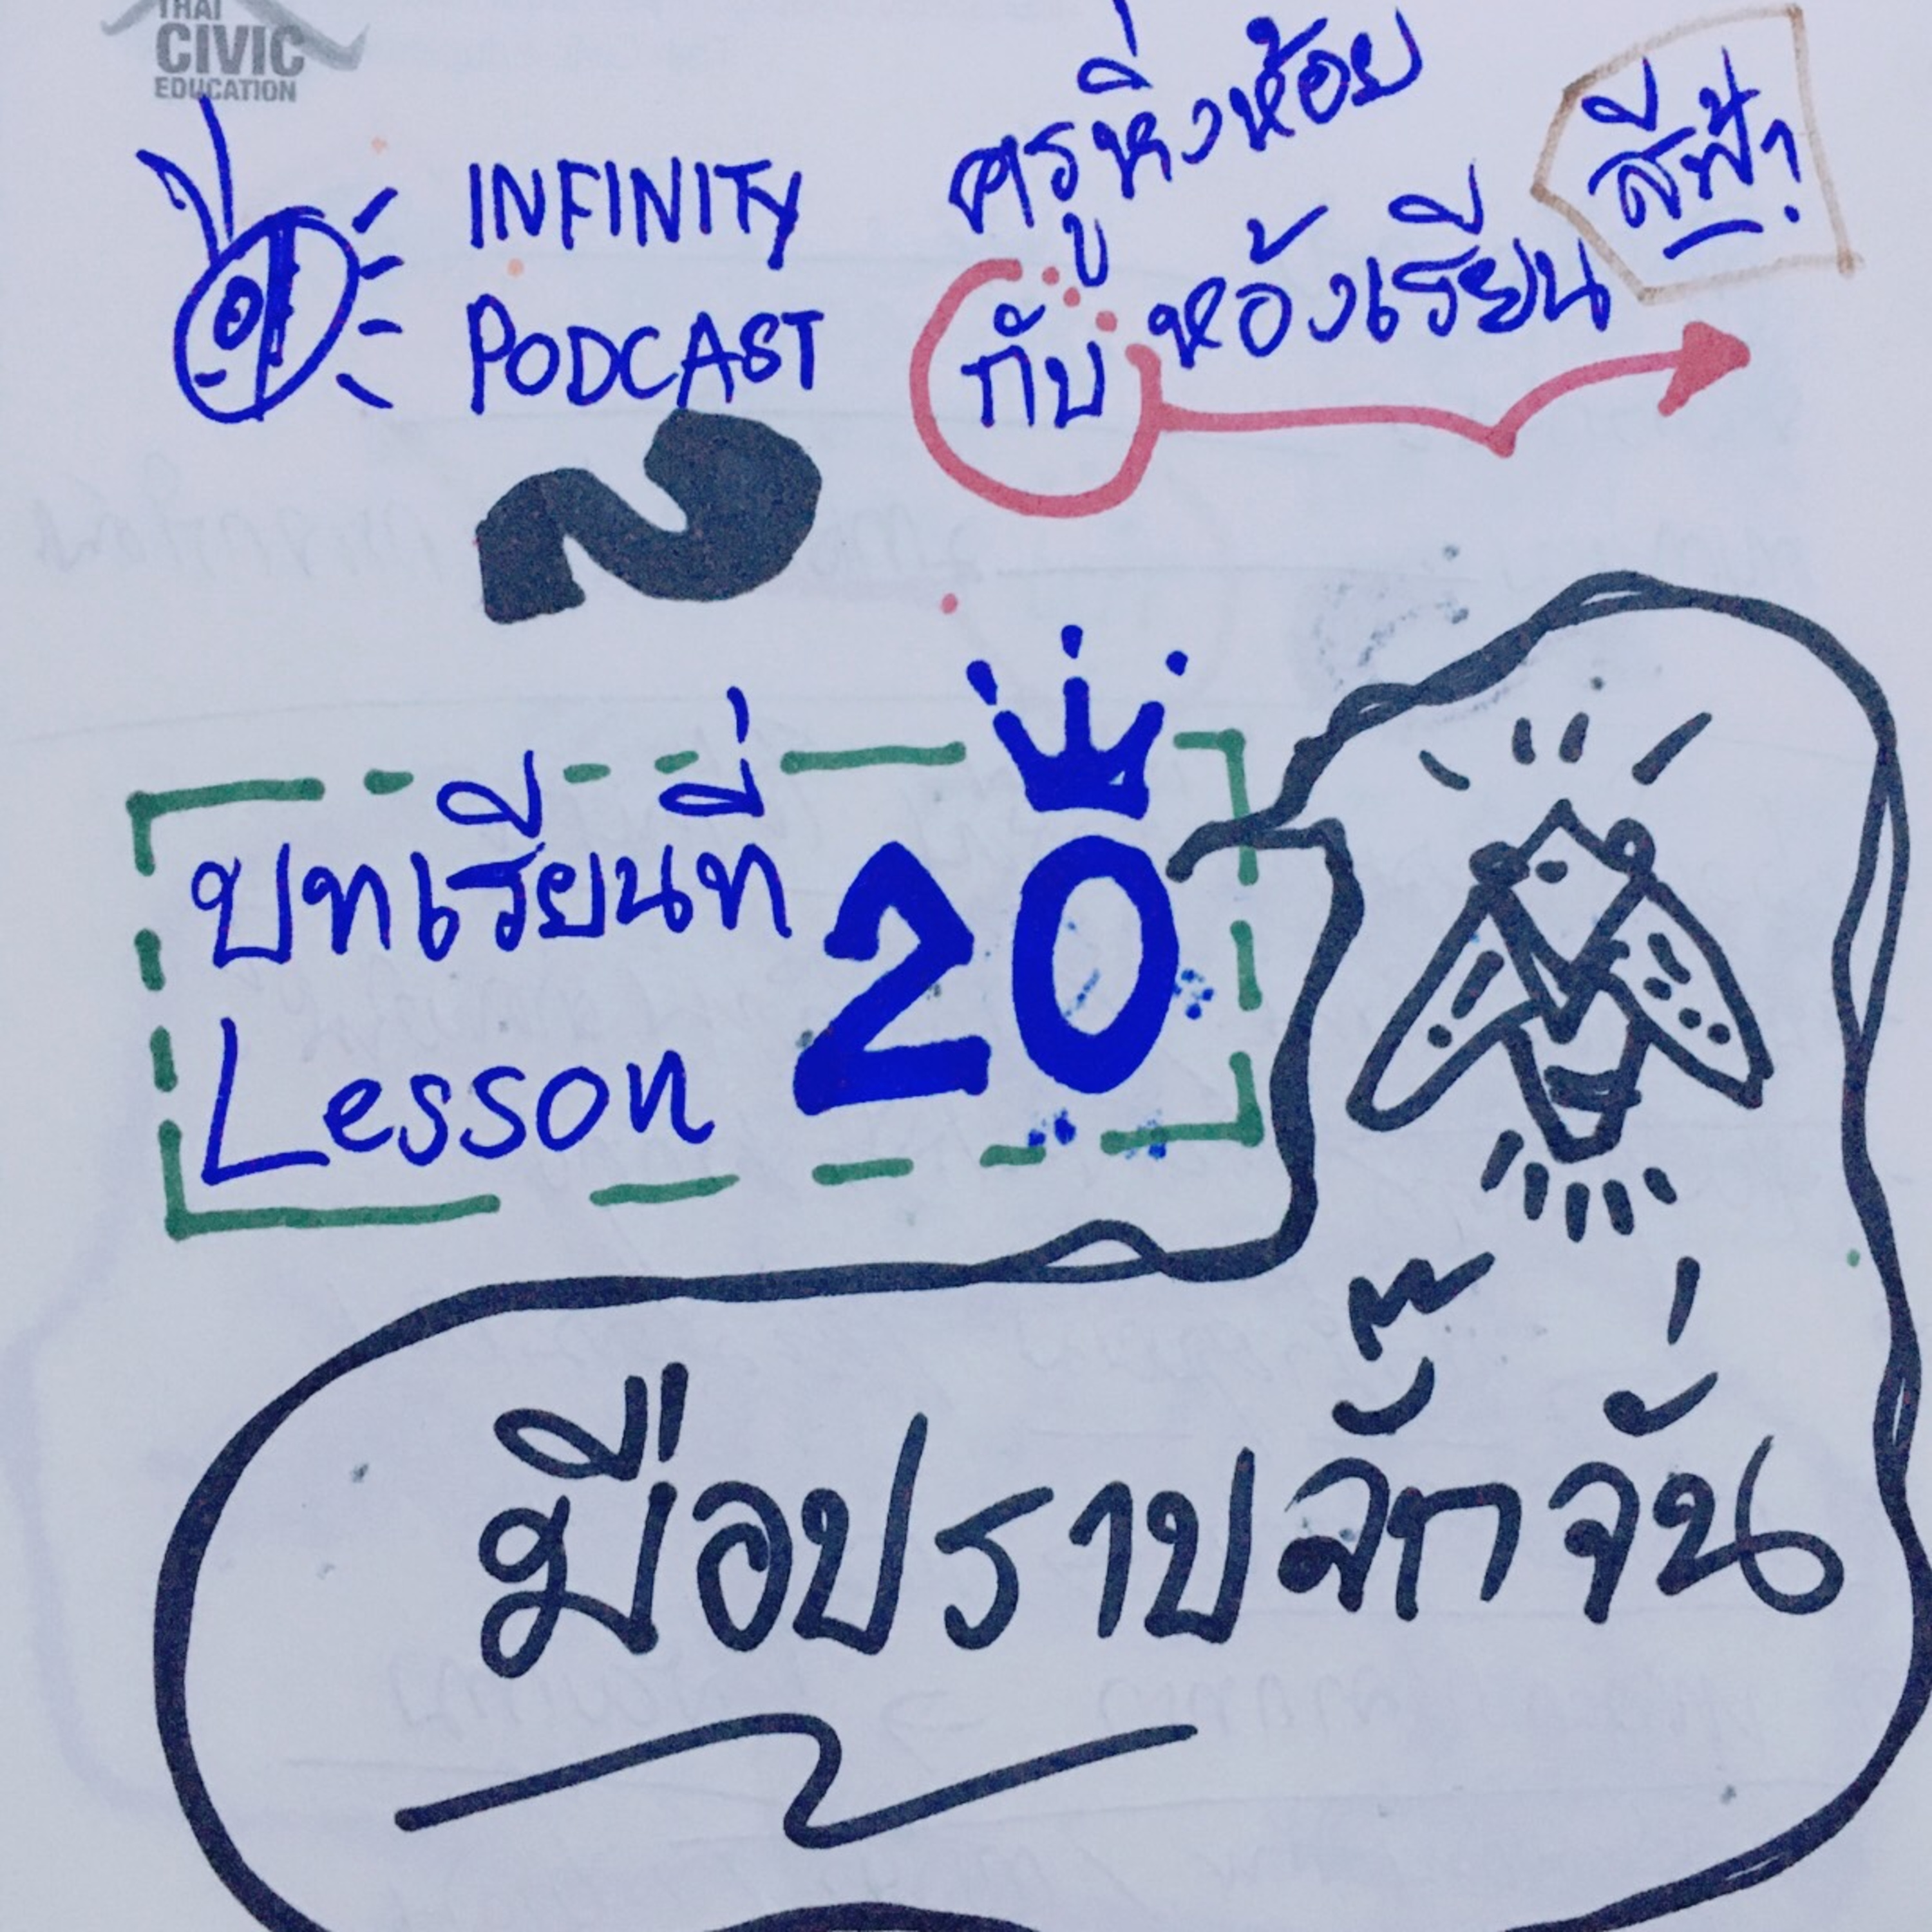 THAI
CIVIC
EDUCATION
INFINITY
PODCAST
ครูหิ่งห้อย
กับห้องเรียน
สีฟ้า
บทเรียนที่ 20
Lesson
มือปราบจั๊กจั่น